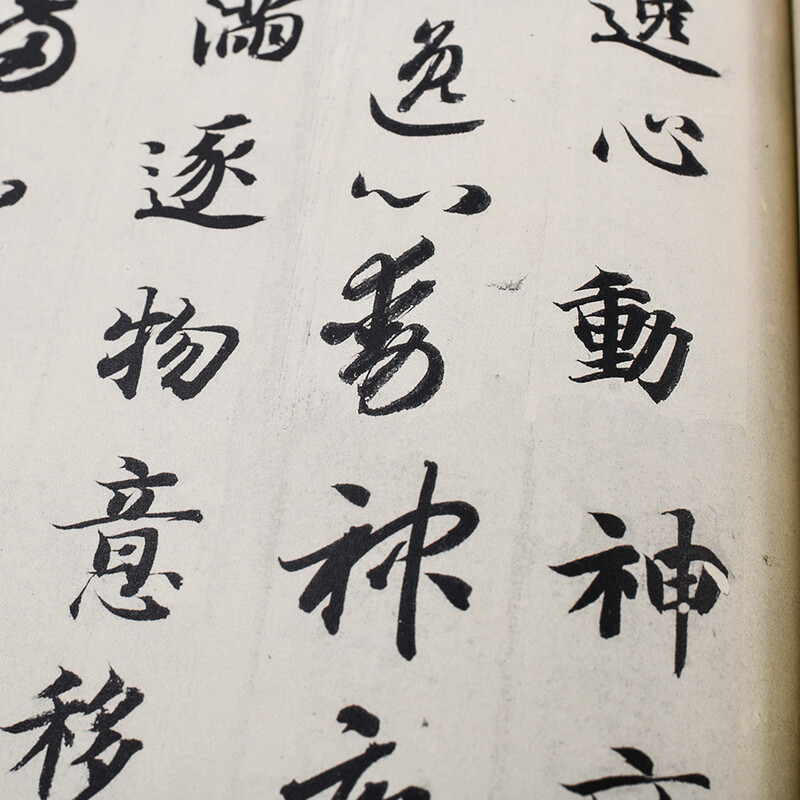 逸心動神
逸心動神
滿逐物意移